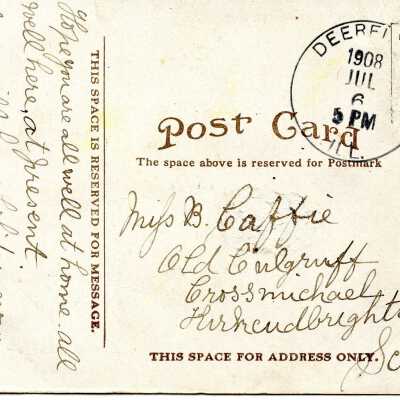 Hope you are all well at home. all
well here, at present.
THIS SPACE IS RESERVED FOR MESSAGE.
DEERFI
1908
JUL
6
5 PM
ILL.
Post Card
The space above is reserved for Postmark
Miss B. Caffie
Old Culgruff
Crossmichael
Kirkcudbright
Sc
THIS SPACE FOR ADDRESS ONLY.